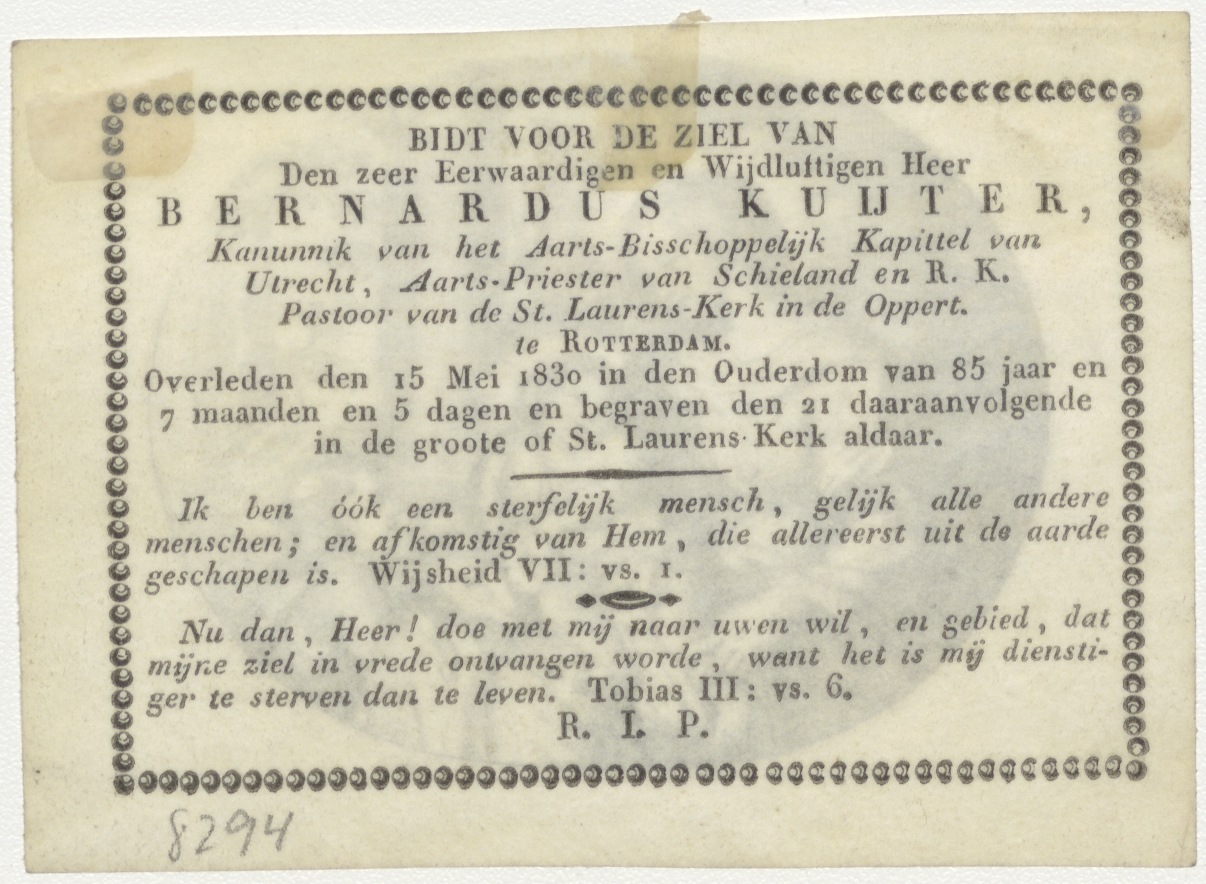 BIDT VOOR DE ZIEL VAN
Den zeer Eerwaardigen en Wijdluftigen Heer
BERNARDUS KUIJTER,
Kanunnik van het Aarts-Bisschoppelijk Kapittel van
Utrecht, Aarts-Priester van Schieland en R. K.
Pastoor van de St. Laurens-Kerk in de Oppert.
te ROTTERDAM.
Overleden den 15 Mei 1830 in den Ouderdom van 85 jaar en
7 maanden en 5 dagen en begraven den 21 daaraanvolgende
in de groote of St. Laurens-Kerk aldaar.
Ik ben óók een sterfelijk mensch, gelijk alle andere
menschen; en afkomstig van Hem, die allereerst uit de aarde
geschapen is. Wijsheid VII: vs. 1.
Nu dan, Heer! doe met mij naar uwen wil, en gebied, dat
mijne ziel in vrede ontvangen worde, want het is mij diensti-
ger te sterven dan te leven. Tobias III: vs. 6.
R. I. P.
8294